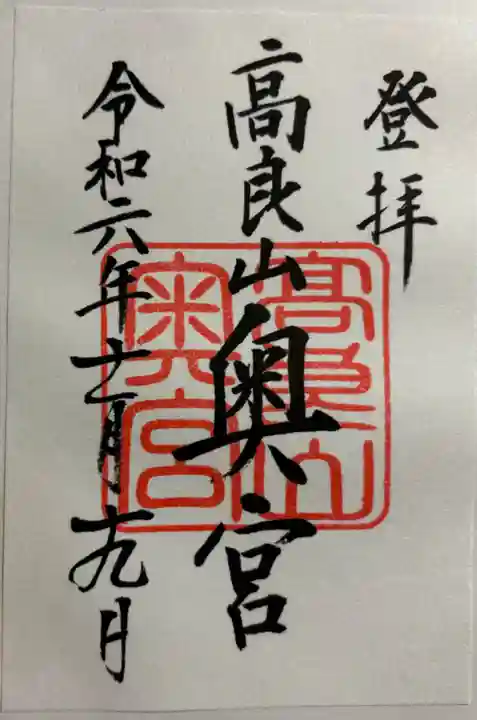 登拝
高良山奥宮
令和六年十一月十九日
高良山奥宮